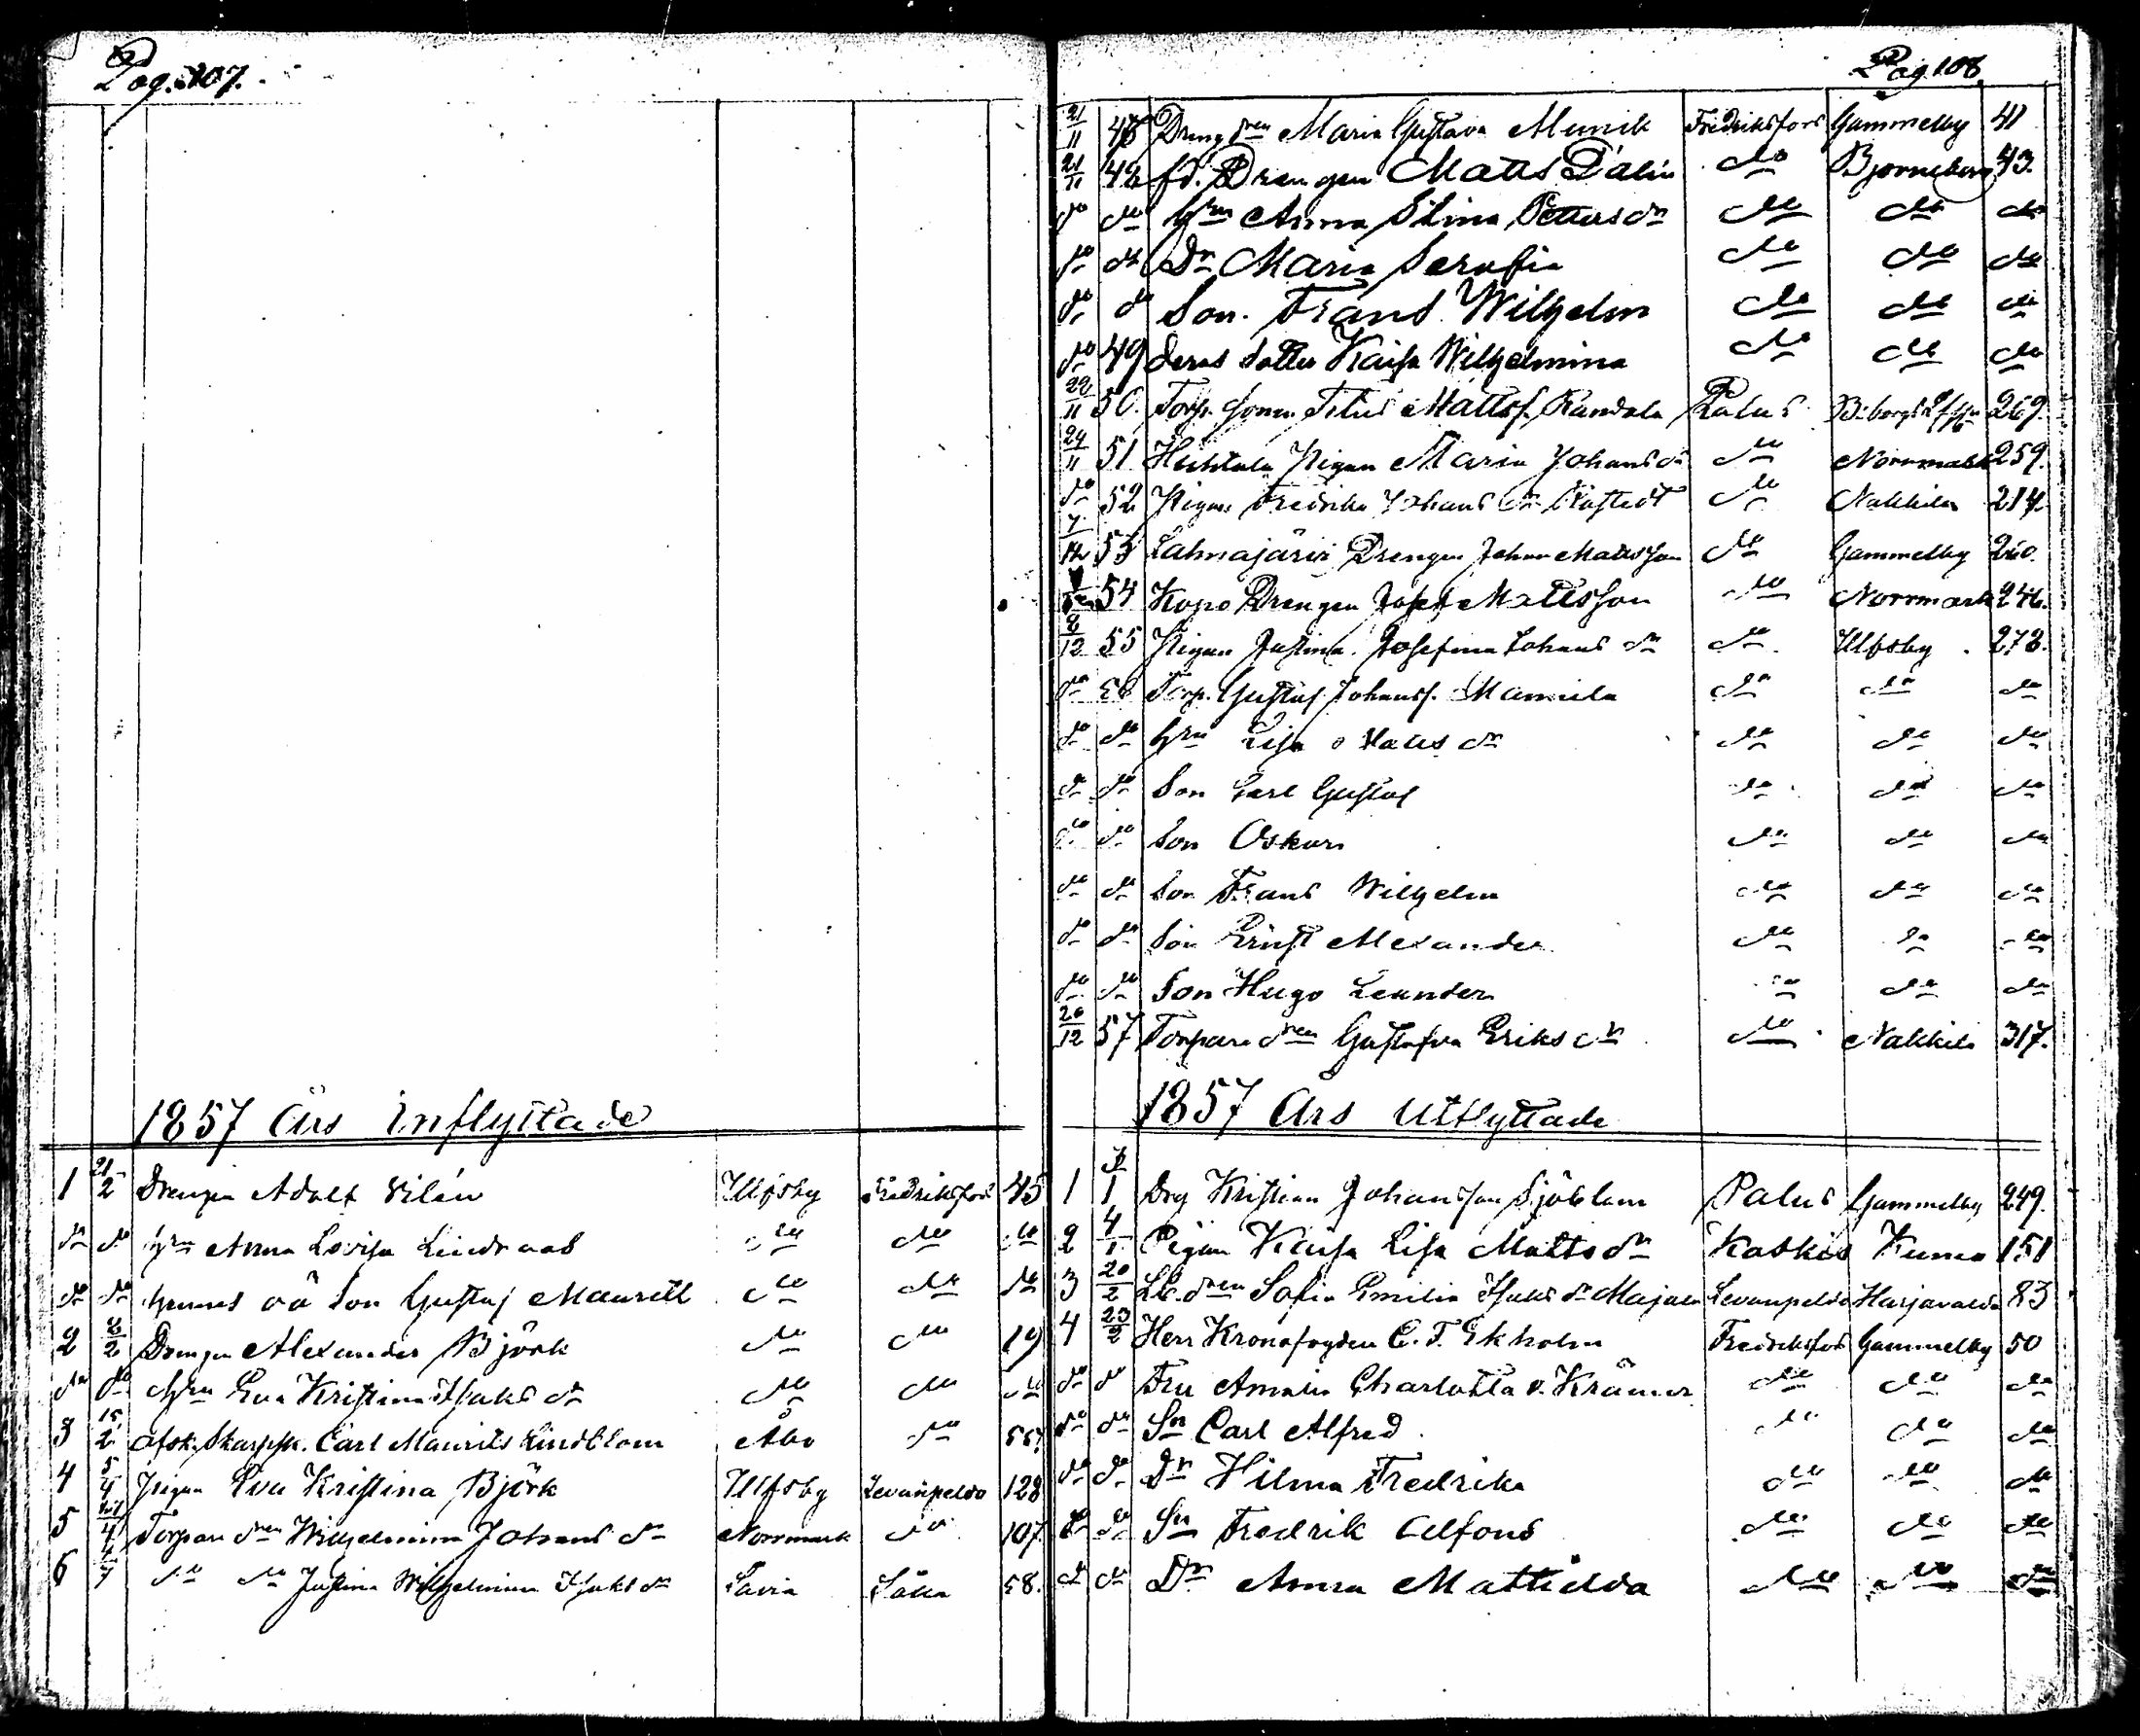 Pag. 107.
1857 Års Inflyttade
1 21/2 Drengen Adolf Vilén Ulfsby Fredriksfors 45
do do hru Anna Lovisa Lindroos do do do
do do hennes oä Son Gustaf Mauritz do do do
2 8/2 Drengen Alexander Björk do do 19
do do hru Eva Kristina Isaks dr do do do
3 15/2 afsk. Skarpsk. Carl Maurits Lindblom Åbo do
4 Pigan Eva Kristina Björk Ulfsby Levanpelda 128
5 Torpare dren Wilhelmina Johans dr Norrmark do 107.
6 do do Justina Wilhelmina Isaks dr Lavia 58.
Pag. 108
21/11 Dreng dren Maria Gustava Fredriksfors Gammelby 41
21/11 48 fd. Drengen Matts Dalin do Bjorneborg 43.
do do hru Anna Stina Petters dr do do do
do do Dr Maria Serafia do do do
do do Son. Frans Wilhelm do do do
do 49 deras dotter Kaisa Wilhelmina do do do
22/11 50. Torp. sonen Titus Matts. Randala Palus 269.
24/11 51 Huhtala Pigan Maria Johans dr do Norrmark 259.
do 52 Pigan Fredrika Johans dr do Nakkila 214.
7/12 53 Lahnajärvi Drengen Johan Mattsson do Gammelby 260.
54 Kopo Drengen Josef Mattsson do Norrmark 246.
8/12 55 Pigan Justina Josefina Johans dr do Ulfsby 278.
do 56 Torp. Gustaf Johans. do do do
do do hru Lisa Matts dr do do do
do do Son Carl Gustaf do do do
do do Son Oskar do do do
do do Son Frans Wilhelm do do do
do do Son Ernst Alexander do do do
do do Son Hugo Leander do do do
20/12 57 Torpare dren Gustafva Eriks dr do Nakkila 317.
1857 Års Utflyttade
1 Drg Kristian Johansson Sjöblom Palus Gammelby 249.
2 4/1 Pigan Kaisa Lisa Matts dr Koskis Kumo 151
3 20/2 dren Sofia Emilia Isaks dr Majala Levanpelda Harjavalda 83
4 23/2 Herr Kronofogden C. F. Ekholm Fredriksfors Gammelby 50
do do Fru Amalia Charlotta v. Krämer do do do
do do Sn Carl Alfred do do do
do do Dr Hilma Fredrika do do do
do do Sn Fredrik Alfons do do do
do do Dr Anna Mathilda do do do